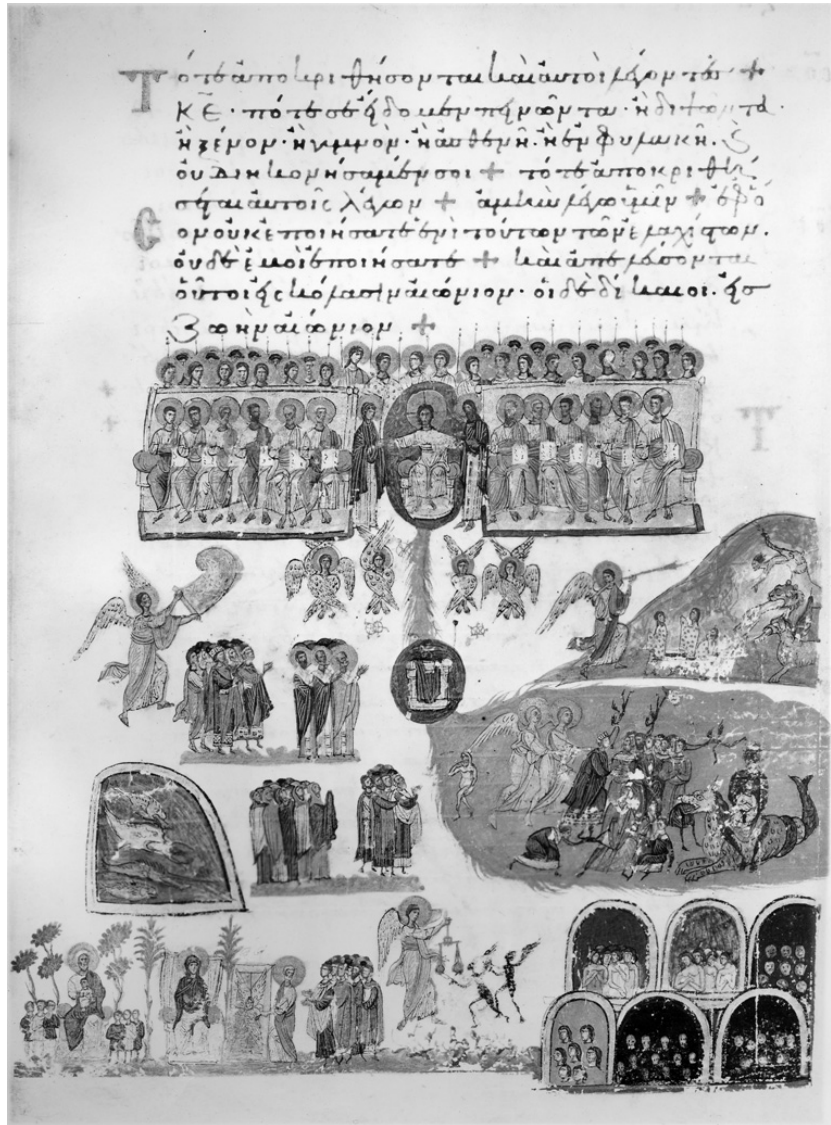 Τότε ἀποκριθήσονται καὶ αὐτοὶ λέγοντες +
ΚΕ · πότε σὲ ἴδομεν πεινῶντα · ἢ διψῶντα ·
ἢ ξένον · ἢ γυμνὸν · ἢ ἀσθενῆ · ἢ ἐν φυλακῆ · ϗ
οὐ διηκονήσαμέν σοι + τότε ἀποκριθή
σεται αὐτοῖς λέγων + ἀμὴν λέγω ὑμῖν + ἐφ ὅ
σον οὐκ ἐποιήσατε ἑνὶ τούτων τῶν ἐλαχίστων ·
οὐδὲ ἐμοὶ ἐποιήσατε + καὶ ἀπελεύσονται
οὗτοι εἰς κόλασιν αἰώνιον · οἱ δὲ δίκαιοι · εἰς
ζωὴν αἰώνιον +